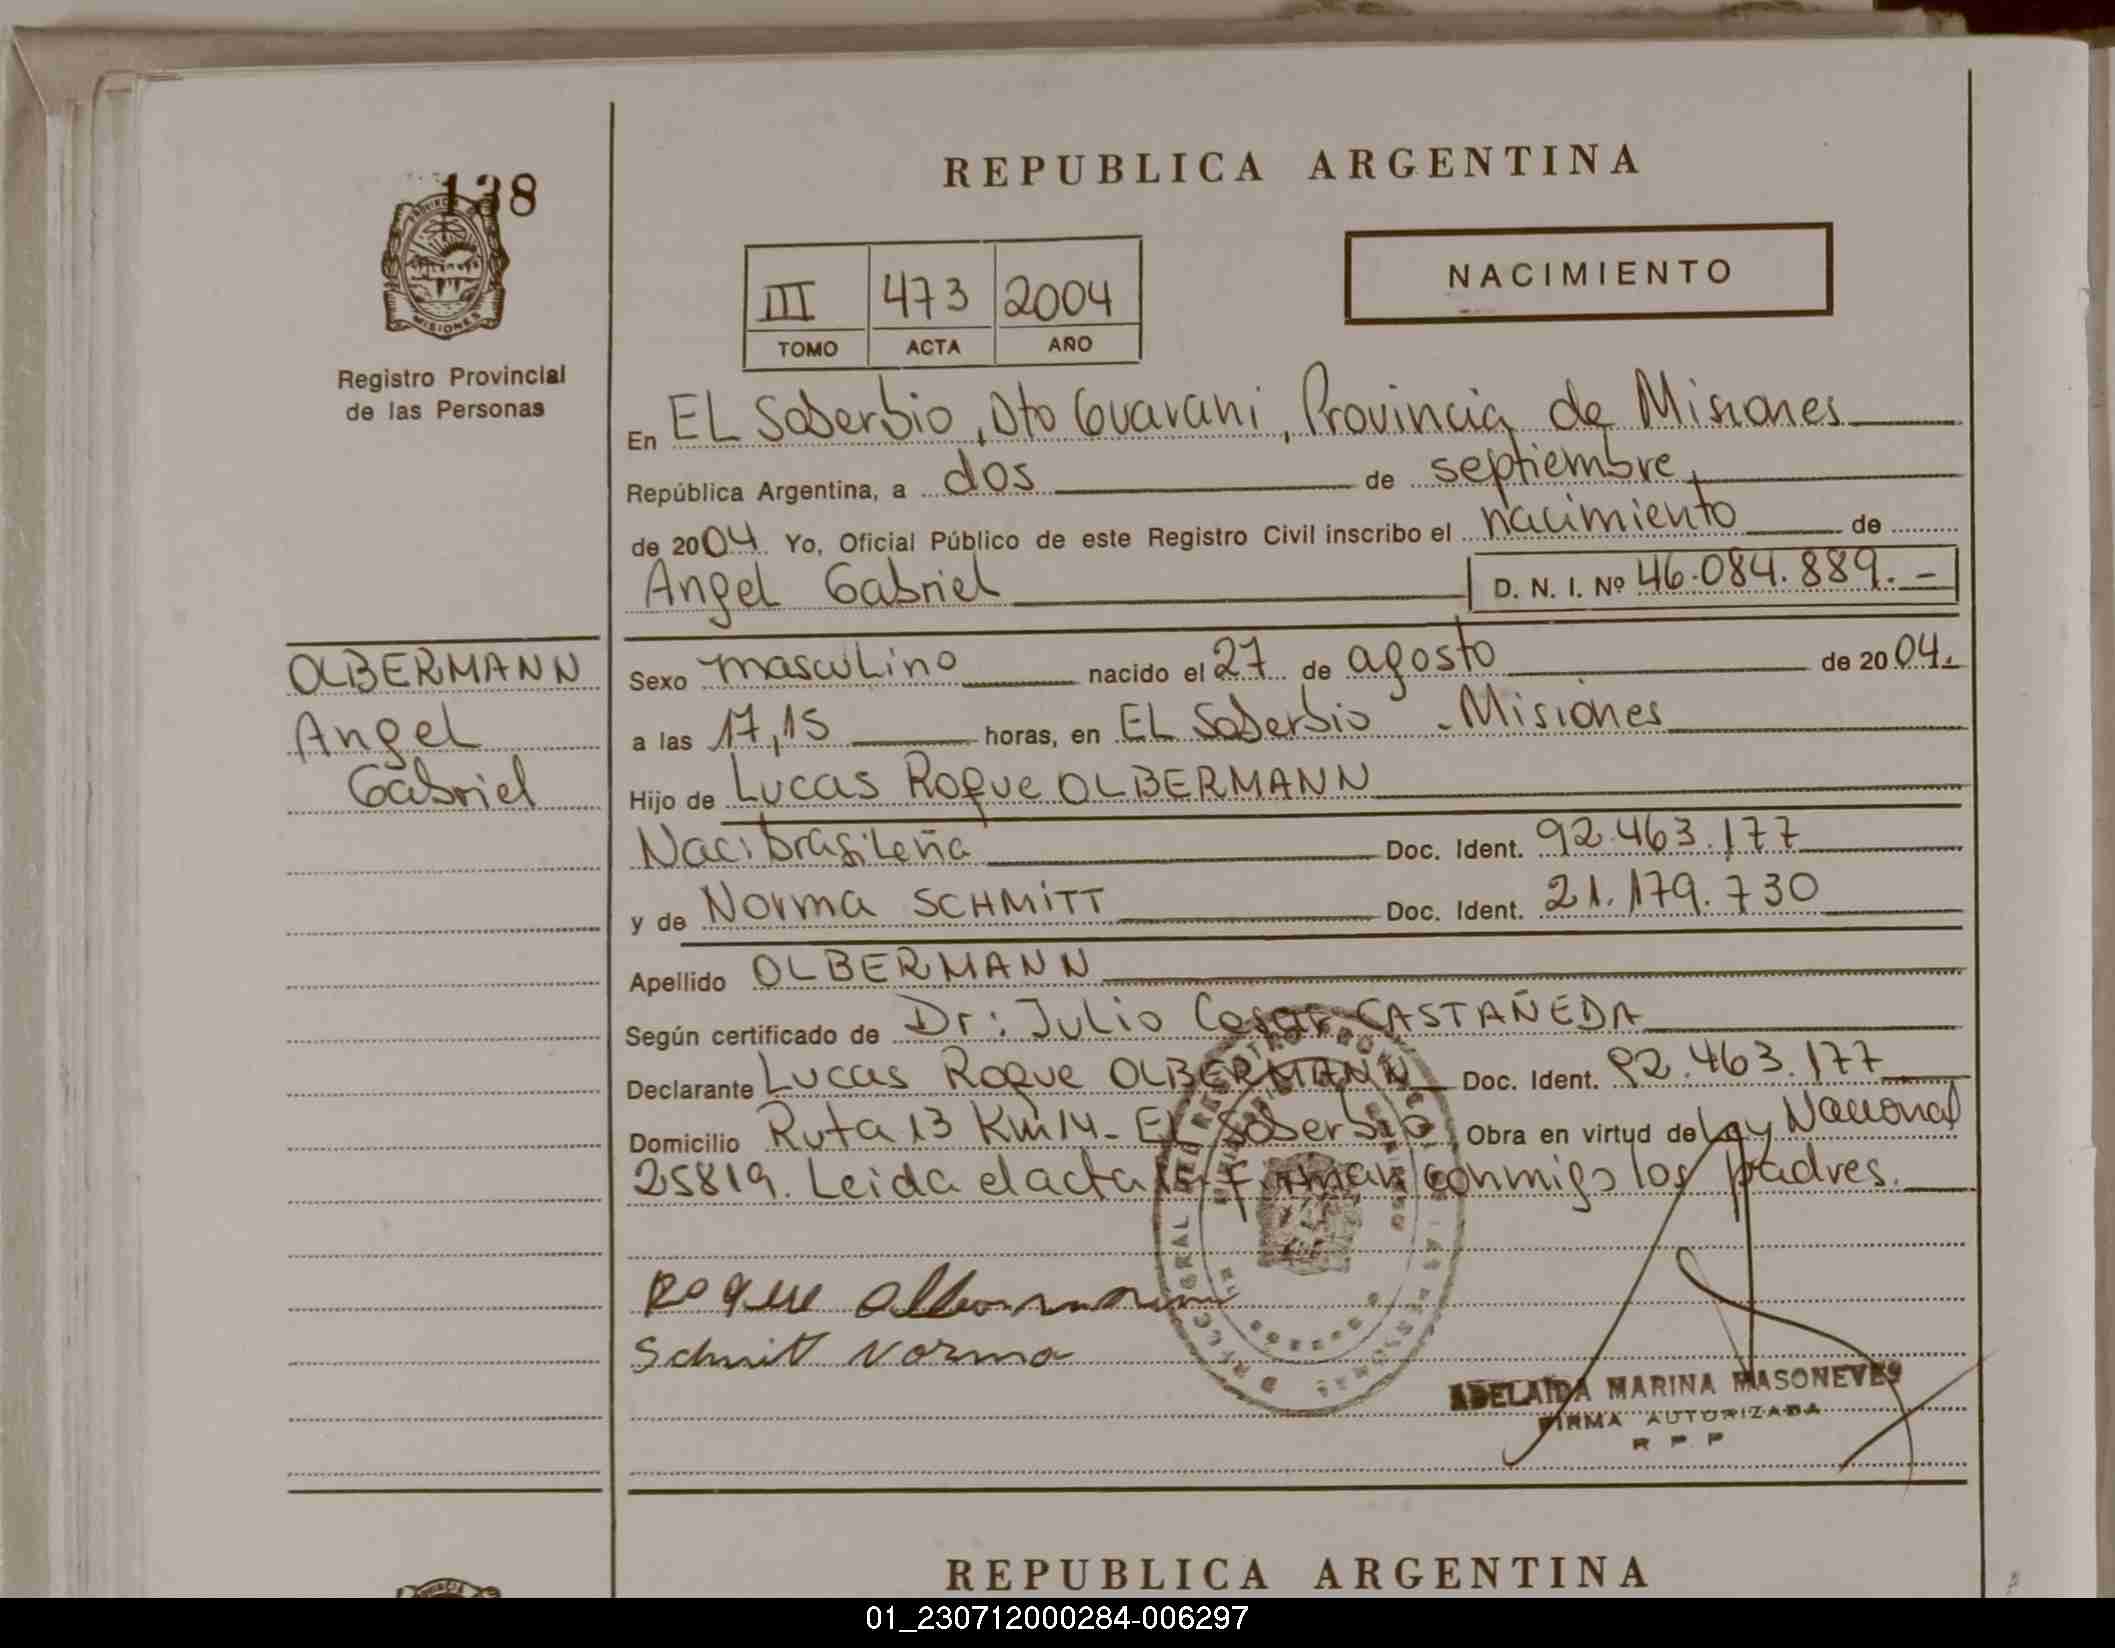 138
PROVINCIA DE
MISIONES
Registro Provincial
de las Personas
OLBERMANN
Angel
Gabriel
REPUBLICA ARGENTINA
III 473 2004
TOMO ACTA AÑO
NACIMIENTO
En EL Soberbio, Dto Guarani, Provincia de Misiones
República Argentina, a dos de septiembre,
de 2004 Yo, Oficial Público de este Registro Civil inscribo el nacimiento de
Angel Gabriel D. N. I. Nº 46.084.889.-
Sexo masculino nacido el 27 de agosto de 2004.
a las 17,15 horas, en EL Soberbio - Misiones
Hijo de Lucas Roque OLBERMANN
Naci brasileña Doc. Ident. 92.463.177
y de Norma SCHMITT Doc. Ident. 21.179.730
Apellido OLBERMANN
Según certificado de Dr: Julio Cesar CASTAÑEDA
Declarante Lucas Roque OLBERMANN Doc. Ident. 92.463.177
Domicilio Ruta 13 Km 14- EL Soberbio Obra en virtud de Ley Nacional
25819. Leida el acta la firman conmigo los padres.
Roque Olbermann
Schmit Norma
ADELAIDA MARINA MASONEVES
FIRMA AUTORIZADA
R P P
REPUBLICA ARGENTINA
01_230712000284-006297